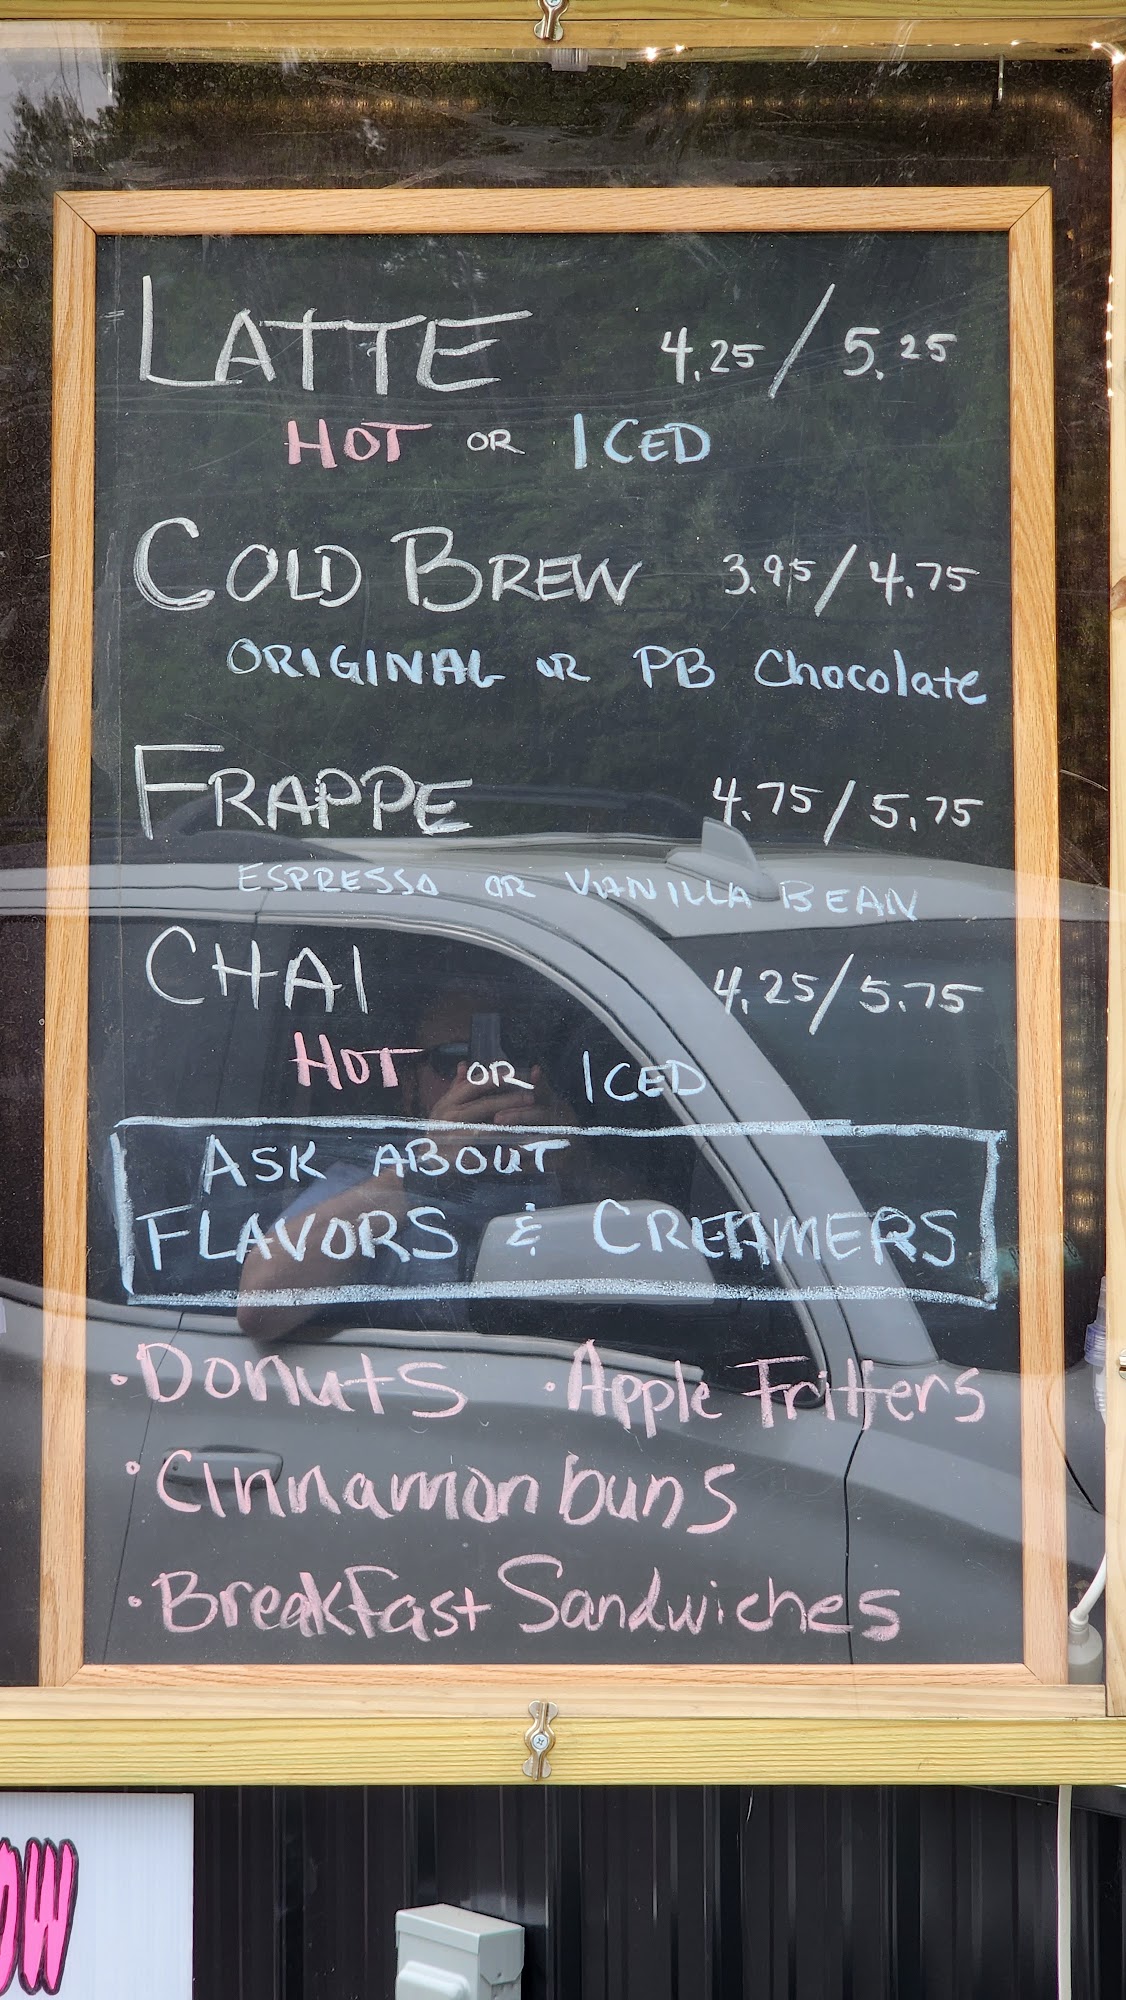 LATTE 4.25/5.25
HOT OR ICED
COLD BREW 3.95/4.75
ORIGINAL OR PB Chocolate
FRAPPE 4.75/5.75
ESPRESSO OR VANILLA BEAN
CHAI 4.25/5.75
HOT OR ICED
ASK ABOUT
FLAVORS & CREAMERS
• Donuts • Apple Fritters
• Cinnamon buns
• Breakfast Sandwiches
OW